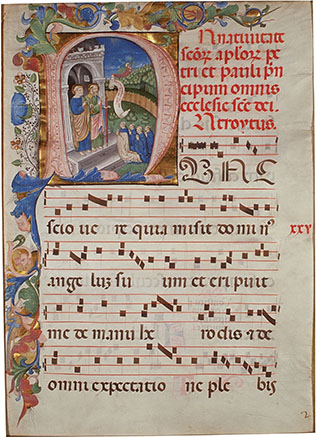 In natiuitate
scõrꝫ aplorꝫ pe
tri et pauli p̃n
cipum omnis
ecclesie scẽ dei.
Introytus.
N UNC
scio ue re quia misit domi nꝰ
xxv
ange luꝫ su um et eripuit
me de manu he rodis & de
omni expectatio ne ple bis